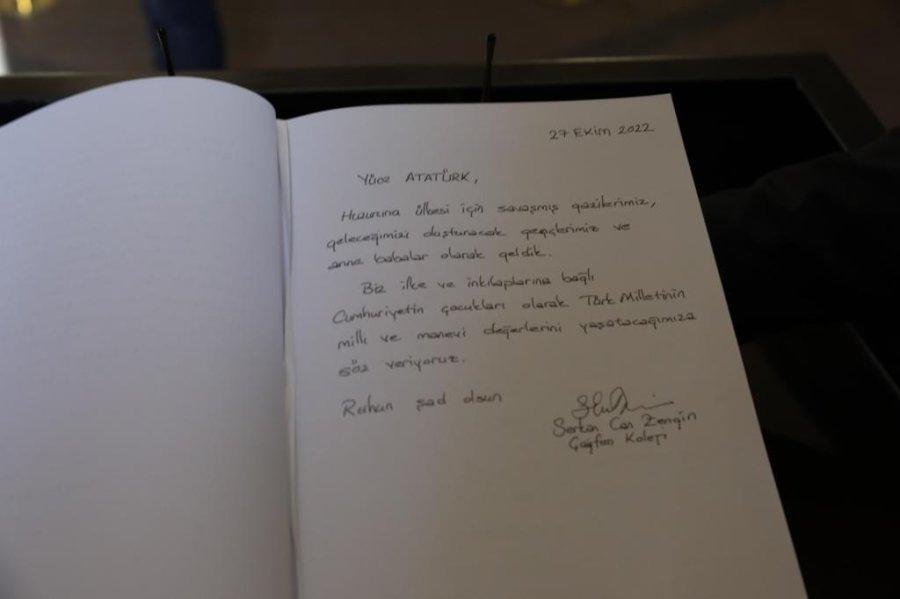 27 Ekim 2022
Yüce ATATÜRK,
Huzuruna ülkesi için savaşmış gazilerimiz,
geleceğimizi oluşturacak gençlerimiz ve
anne babalar olarak geldik.
Biz ilke ve inkılaplarına bağlı
Cumhuriyetin çocukları olarak Türk Milletinin
milli ve manevi değerlerini yaşatacağımıza
söz veriyoruz.
Ruhun şad olsun
Serkan Can Zengin
Çağfen Koleji